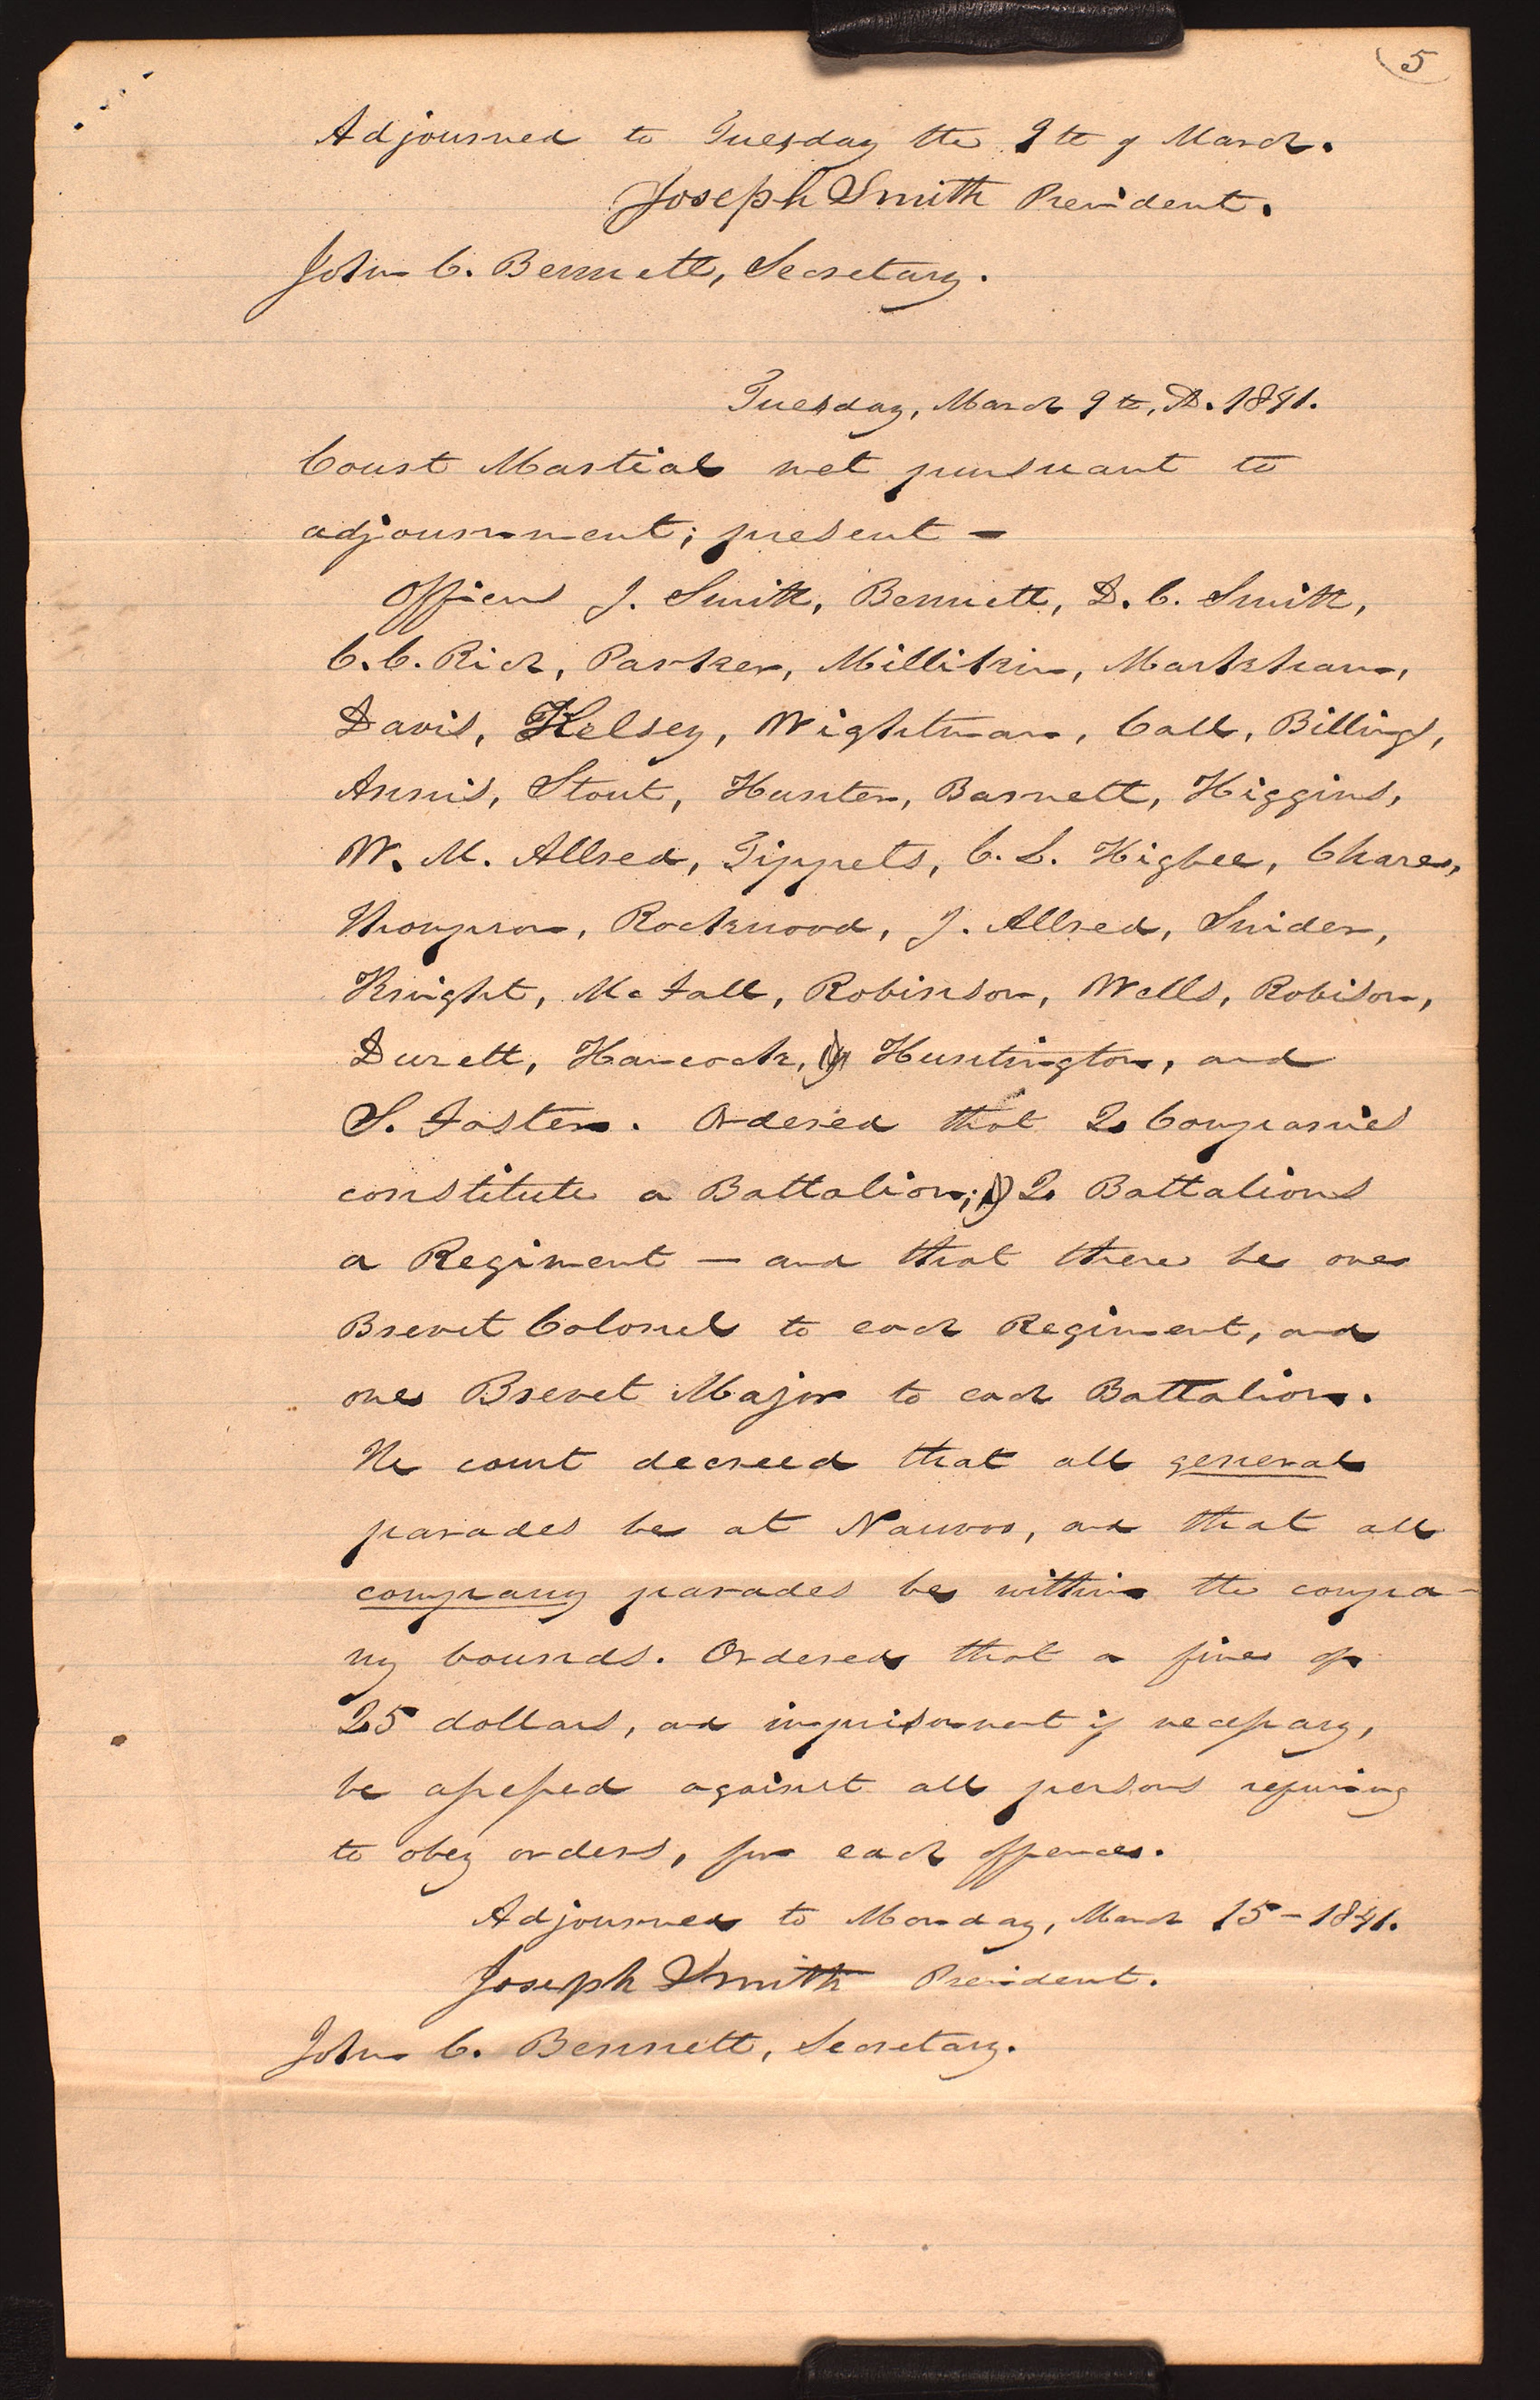 5
Adjourned to Tuesday the 9th of March.
Joseph Smith President.
John C. Bennett, Secretary.
Tuesday, March 9th, A. D. 1841.
Court Martial met pursuant to
adjournment; present —
Officers J. Smith, Bennett, D. C. Smith,
C. C. Rich, Parker, Millikin, Markham,
Davis, Kelsey, Wightman, Call, Billings,
Annis, Stout, Hunter, Barnett, Higgins,
W. M. Allred, Tippets, C. L. Higbee, Chase,
Thompson, Rockwood, J. Allred, Snider,
Knight, McFall, Robinson, Wells, Robison,
Durett, Hancock, Huntington, and
S. Foster. Ordered that 2 Companies
constitute a Battalion; 2 Battalions
a Regiment — and that there be one
Brevet Colonel to each Regiment, and
one Brevet Major to each Battalion.
The court decreed that all general
parades be at Nauvoo, and that all
company parades be within the compa-
ny bounds. Ordered that a fine of
25 dollars, and imprisonment if necessary,
be assessed against all persons refusing
to obey orders, for each offence.
Adjourned to Monday, March 15 – 1841.
Joseph Smith President.
John C. Bennett, Secretary.